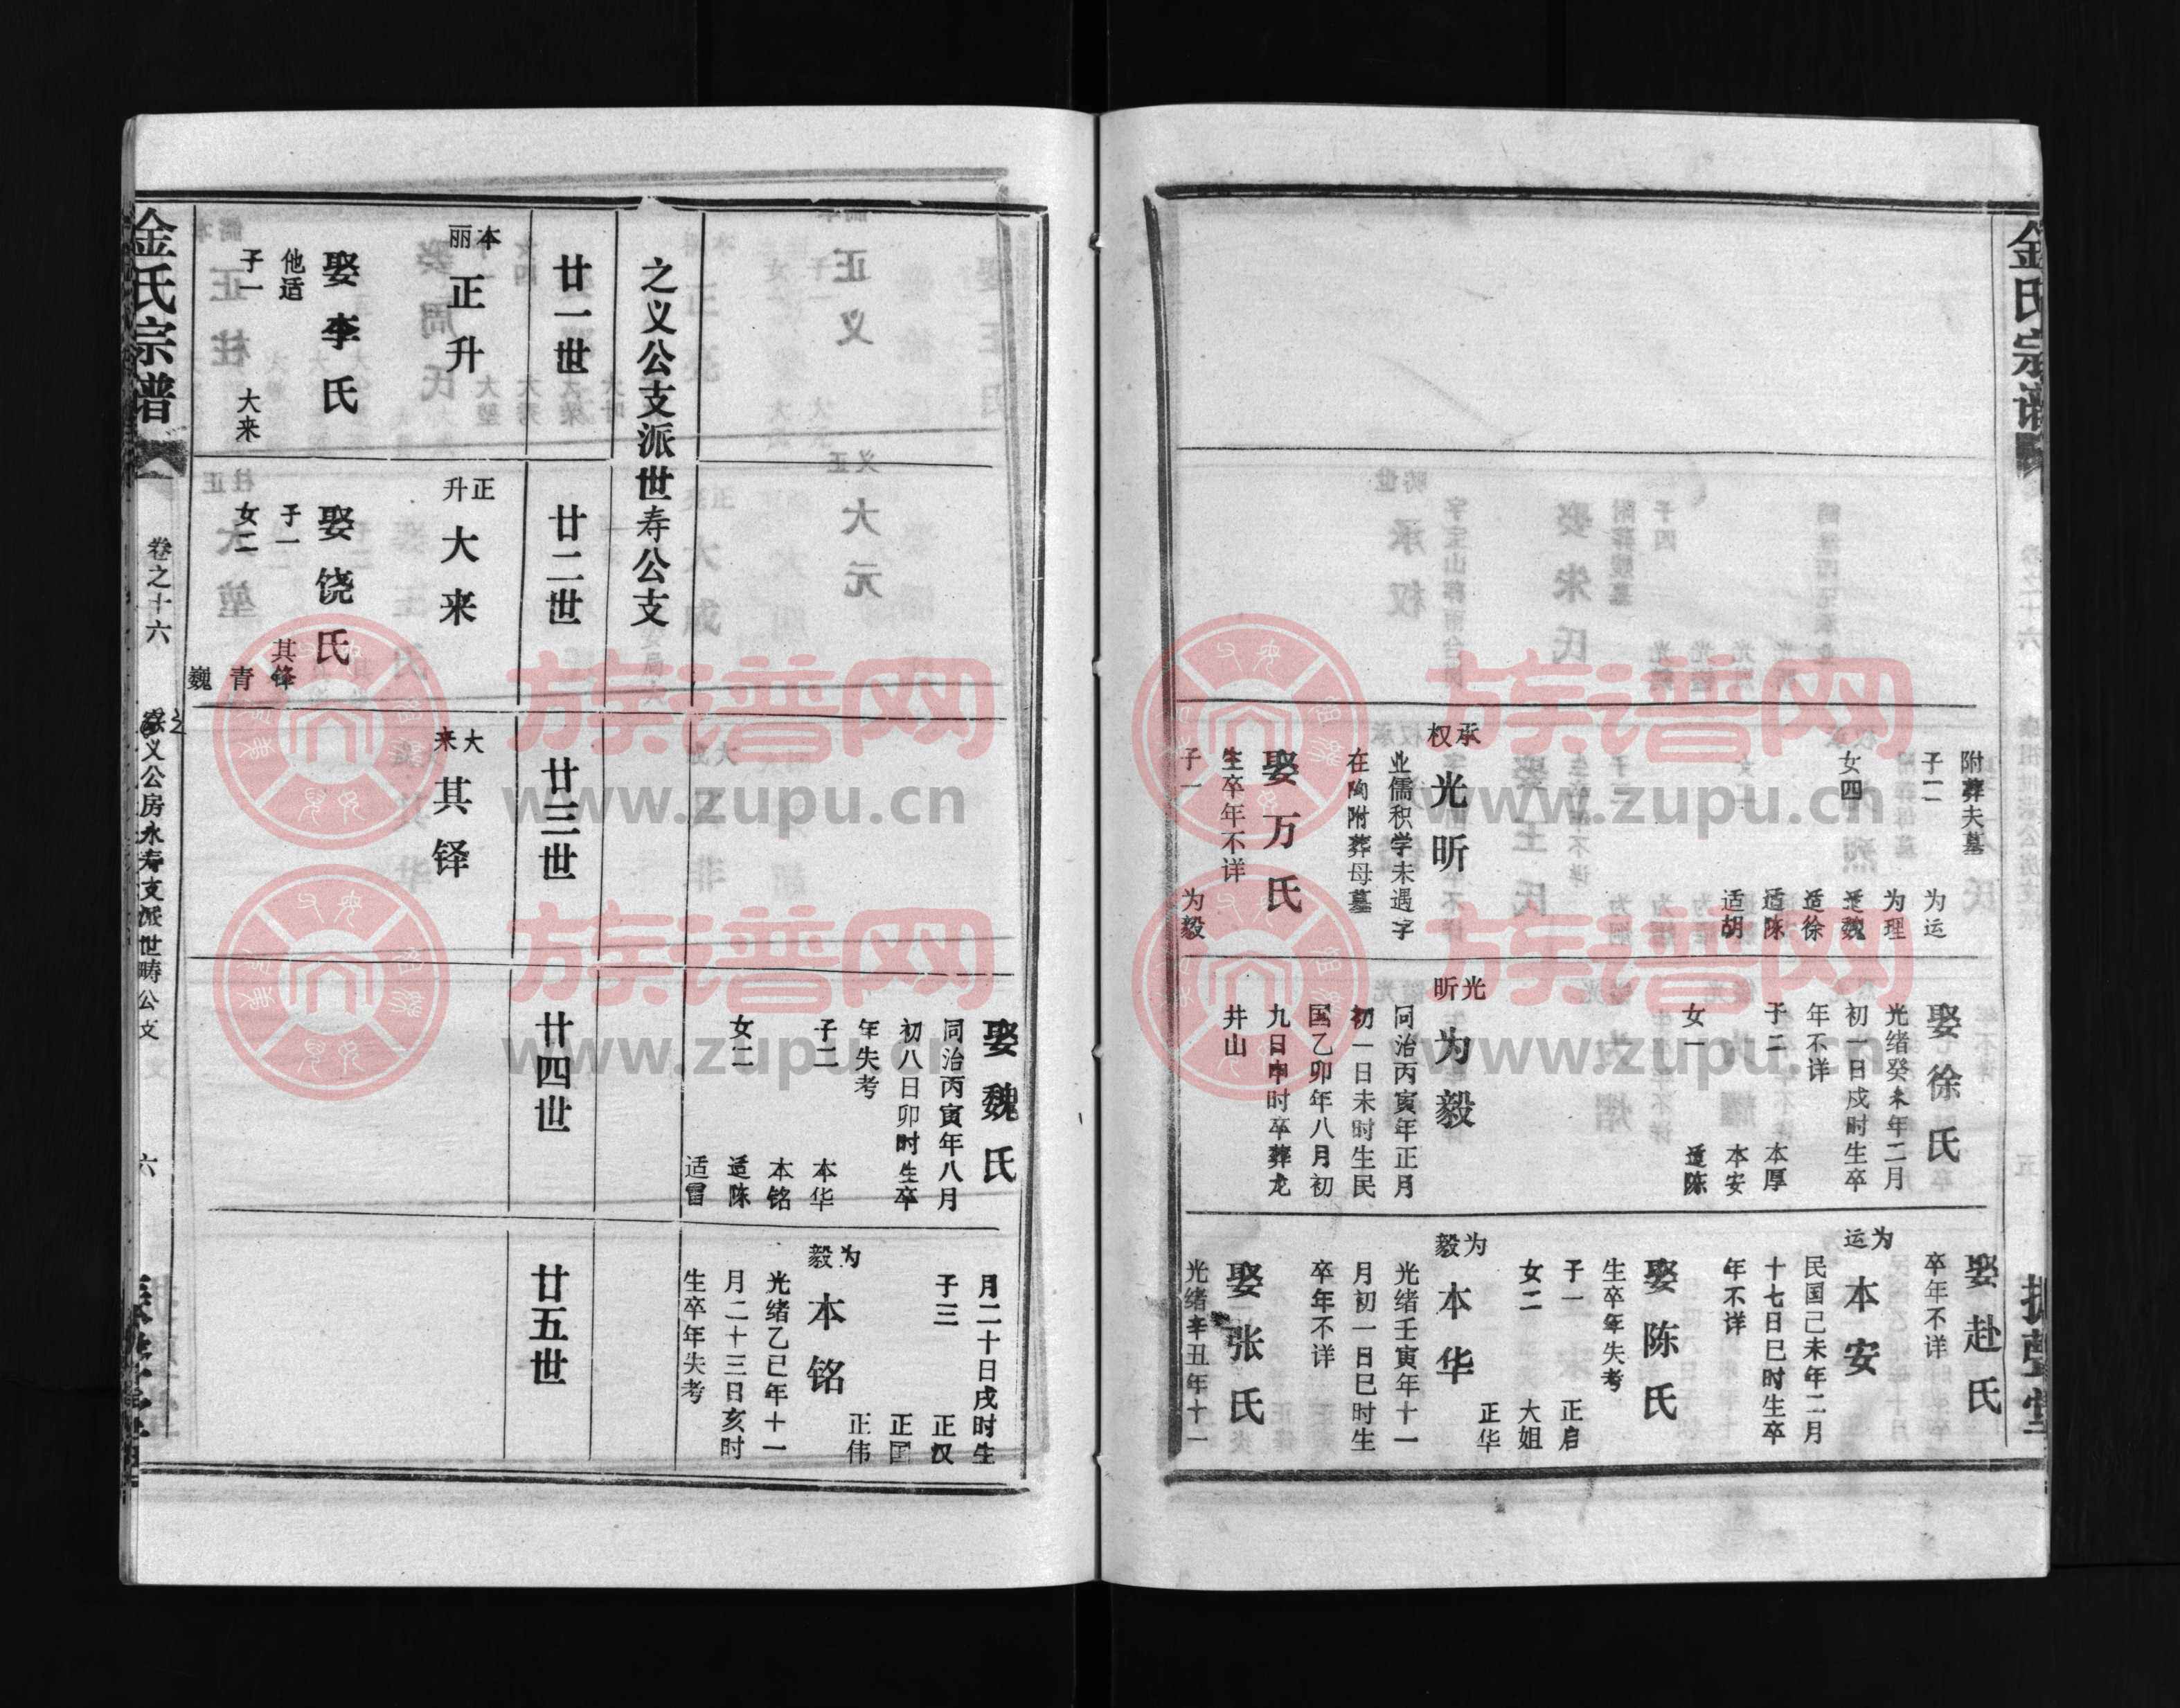 金氏宗谱
附葬夫墓
子二
为运
为理
女四
适魏
适徐
适陈
适胡
承权
光昕
业儒积学未遇字
在陶附葬母墓
娶万氏
生卒年不详
子一
为毅
娶徐氏
光绪癸未年二月
初一日戌时生卒
年不详
子二
本厚
本安
女一
适陈
光昕
为毅
同治丙寅年正月
初一日未时生民
国乙卯年八月初
九日申时卒葬龙
井山
娶赴氏
卒年不详
为运
本安
民国己未年二月
十七日巳时生卒
年不详
娶陈氏
生卒年失考
子一
正启
女二
大姐
正华
为毅
本华
光绪壬寅年十一
月初一日巳时生
卒年不详
娶张氏
光绪辛丑年十二
娶魏氏
同治丙寅年八月
初八日卯时生卒
年失考
子二
本华
本铭
女二
适陈
适冒
月二十日戌时生
子三
正汉
正国
正伟
为毅
本铭
光绪乙巳年十一
月二十三日亥时
生卒年失考
之义公支派世寿公支
廿一世
廿二世
廿三世
廿四世
廿五世
本丽
正升
娶李氏
他适
子一
大来
正升
大来
娶饶氏
子一
其铎
女二
青
巍
大来
其铎
金氏宗谱
卷之十六
义公房永寿支派世畴公支
六
族谱网
www.zupu.cn
族谱网
www.zupu.cn
族谱网
www.zupu.cn
族谱网
www.zupu.cn